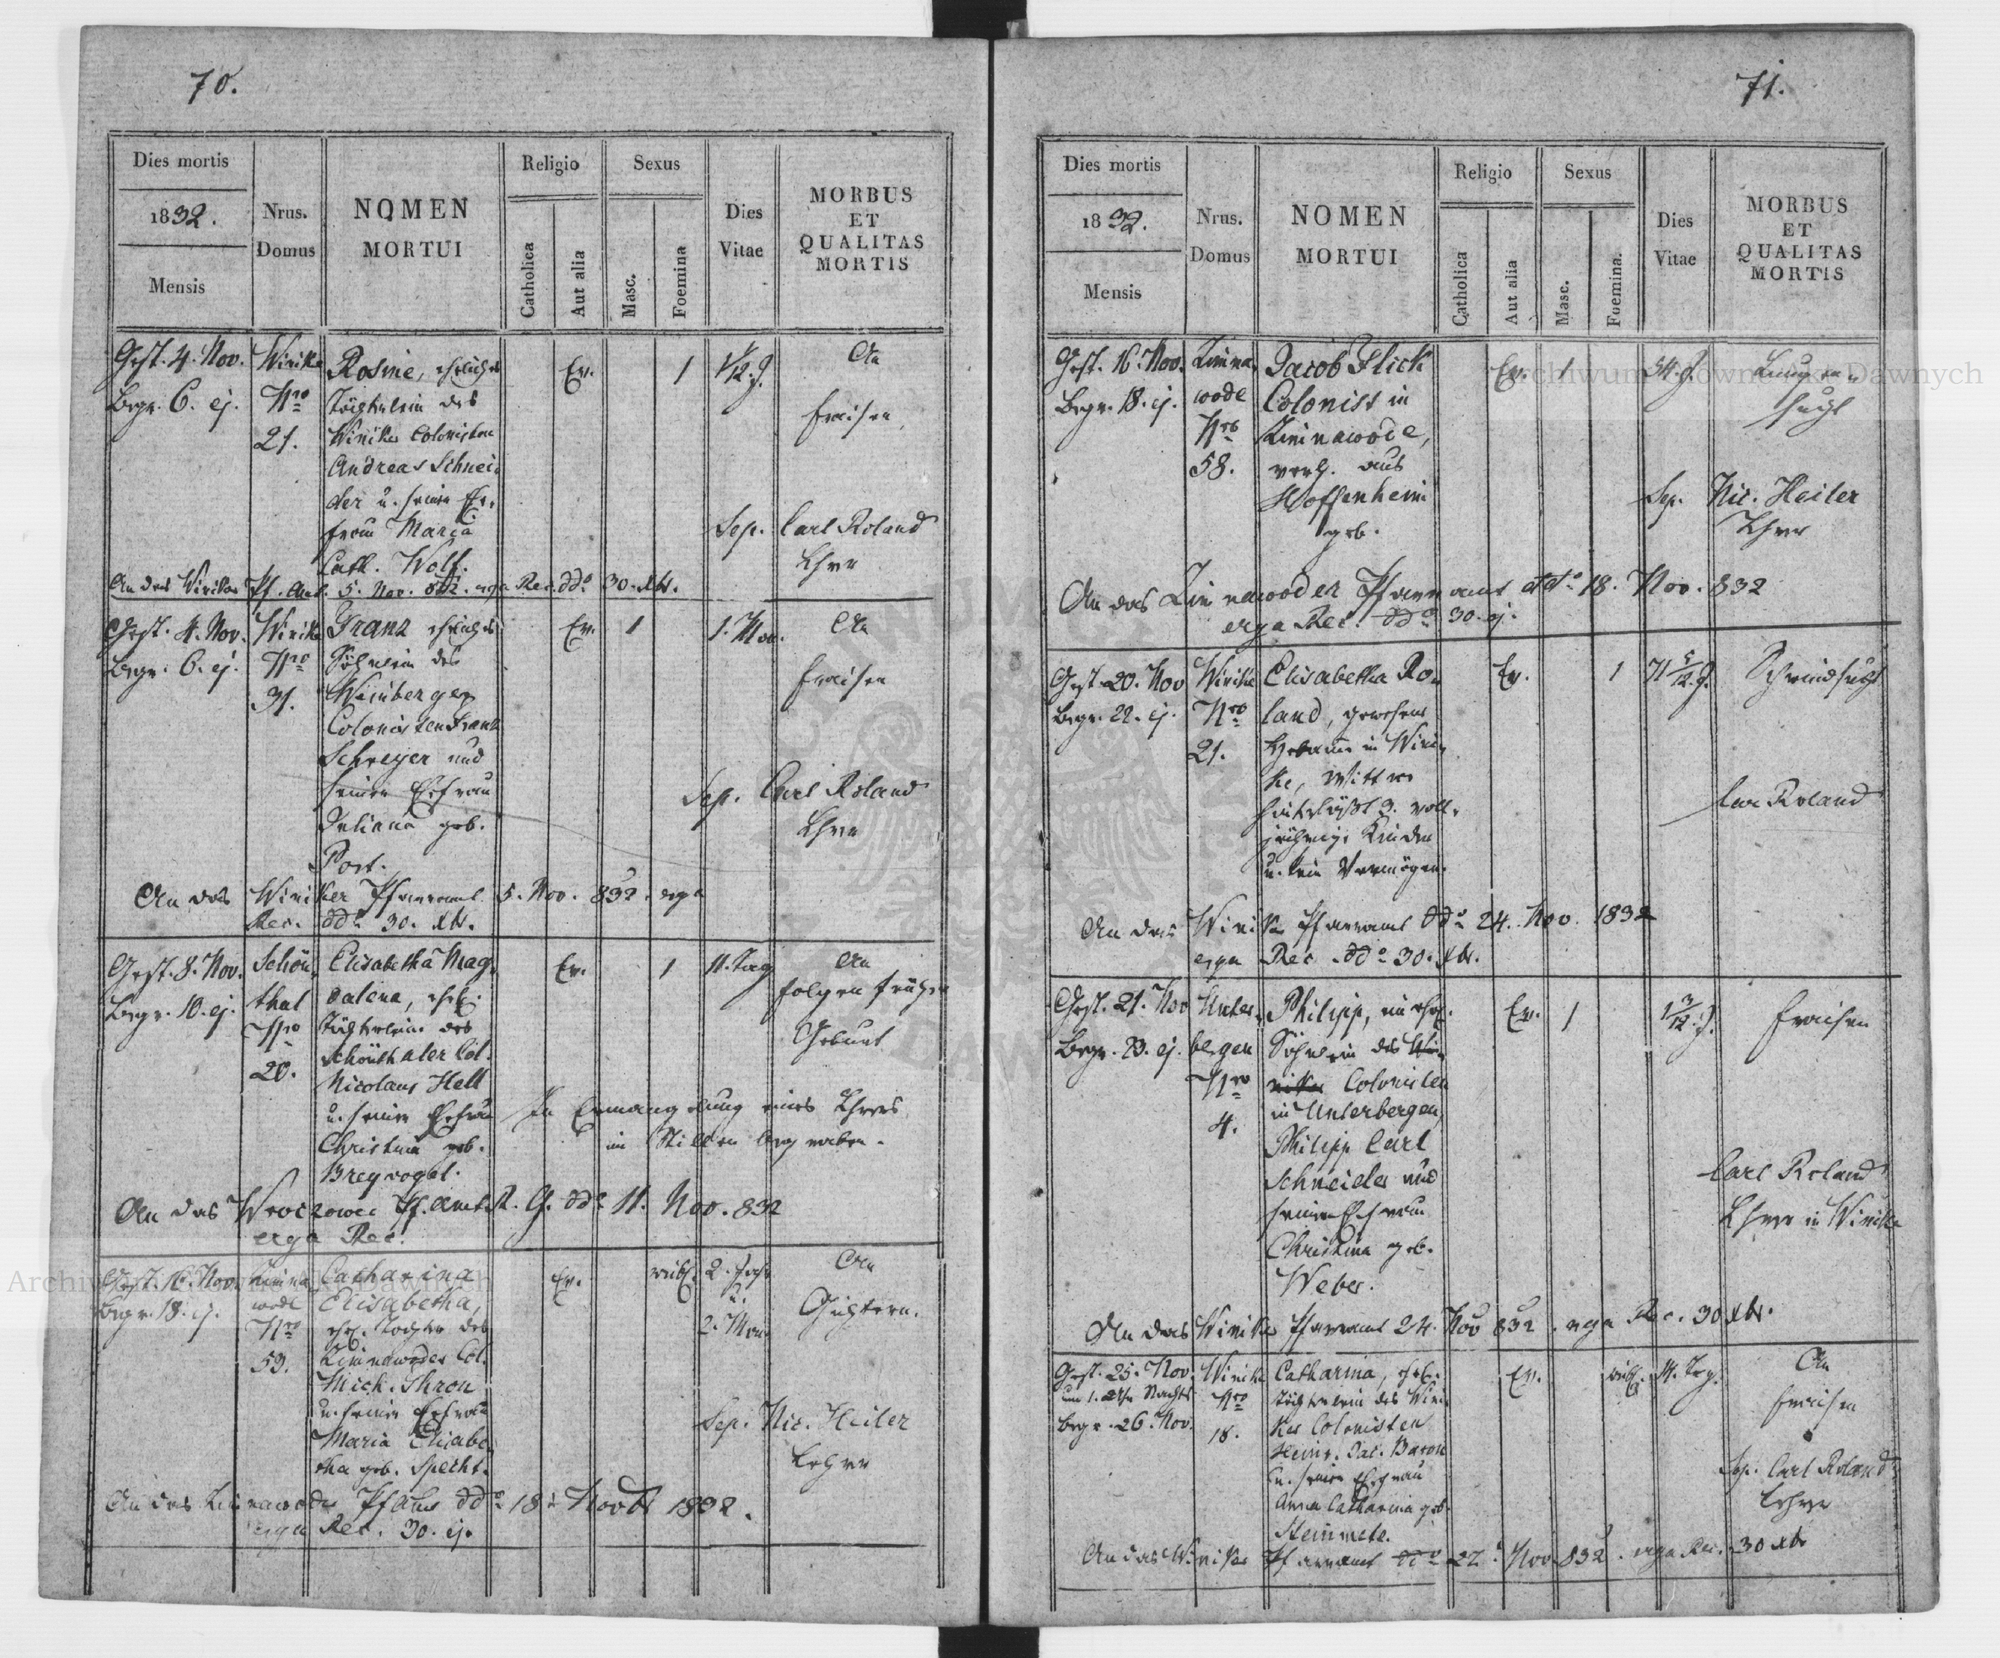 70.
Dies mortis
1832.
Mensis
Nrus.
Domus
NOMEN
MORTUI
Religio
Catholica
Aut alia
Sexus
Masc.
Foemina
Dies
Vitae
MORBUS
ET
QUALITAS
MORTIS
Gest. 4. Nov.
Begr. 6. ej.
Winike
Nro
21.
Rosine, eheliches
Töchterlein des
Winiker Colonisten
Andreas Schnei-
der u. seiner Ehe-
frau Maria
Cath. Wolf.
Ev.
1
1/12 J.
An
Fraisen
Sep. Carl Roland
Lehrer
An das Winiker Pf. Amt. 5. Nov. 832. erga Rec. ddo 30. Xbr.
Gest. 4. Nov.
Begr. 6. ej.
Winike
Nro
31.
Franz eheliches
Söhnlein des
Weinberger
Colonisten Franz
Schreyer und
seiner Ehefrau
Juliana geb.
Port.
Ev.
1
1. Mon.
An
Fraisen
Sep. Carl Roland
Lehrer
An das Winiker Pfarramt 5. Nov. 832. erga
Rec. ddo 30. Xbr.
Gest. 8. Nov.
Begr. 10. ej.
Schön-
thal
Nro
20.
Elisabetha Mag-
dalena, ehel.
Töchterlein des
Schönthaler Col.
Nicolaus Hell
u. seiner Ehefrau
Christina geb.
Breyvogel.
Ev.
1
11. Tag
An
Folgen früher
Geburt
In Ermanglung eines Lehrers
im Stillen begraben.
An das Wroczower Pf. Amt. R. G. ddo 11. Nov. 832
erga Rec.
Gest. 16. Nov.
Begr. 18. ej.
Kuttna
wode
Nro
53.
Catharina
Elisabetha,
ehel. Tochter des
Col.
Mich. Skron
u. seiner Ehefrau
Maria Elisabe-
tha geb. Specht.
Ev.
weibl.
2. Jahr
u.
2. Mon.
An
Gichtern.
Sep. Nic. Heiler
Lehrer
An das Pfarr ddo 18. Novb 1832.
erga Rec. 30. ej.
71.
Dies mortis
1832.
Mensis
Nrus.
Domus
NOMEN
MORTUI
Religio
Catholica
Aut alia
Sexus
Masc.
Foemina.
Dies
Vitae
MORBUS
ET
QUALITAS
MORTIS
Gest. 16. Nov.
Begr. 18. ej.
wode
Nro
58.
Jacob Flick
Colonist in
verh. aus
Hoffenheim
geb.
Ev.
1
54. J.
Lungen-
sucht
Sep. Nic. Heiler
Lehrer
An das Pfarramt ddo 18. Nov. 832
erga Rec. ddo 30. ej.
Gest. 20. Nov
Begr. 22. ej.
Winike
Nro
21.
Elisabetha Ro-
land, gewesene
Hebame in Wini-
ke, Wittwe
hinterläßt 3. voll-
jährige Kinder
u. kein Vermögen.
Ev.
1
71 5/12 J.
Schwindsucht
Car Roland
An das Winiker Pfarramt ddo 24. Nov. 1832
erga Rec. ddo 30. Xbr.
Gest. 21. Nov
Begr. 23. ej.
Unter-
bergen
Nro
4.
Philipp, ein ehel.
Söhnlein des Wi-
niker Colonisten
in Unterbergen,
Philipp Carl
Schneider und
seiner Ehefrau
Christina geb.
Weber.
Ev.
1
1 3/12 J.
Fraisen
Carl Roland
Lehrer in Winike
An das Winiker Pfarramt 24. Nov 832. erga Rec. 30 Xbr.
Gest. 25. Nov.
um 1. Uhr Nachts
Begr. 26. Nov.
Winike
Nro
18.
Catharina, ehel.
Töchterlein des Wini-
ker Colonisten
Heinr. Jac. Baron
u. seiner Ehefrau
Anna Catharina geb.
Steinmetz.
Ev.
weibl.
14. Tag.
An
Fraisen
Sep. Carl Roland
Lehrer
An das Winiker Pfarramt ddo 27. Nov 832. erga Rec. 30 Xbr
Archiwum Główne Akt Dawnych
Archiwum Główne Akt Dawnych